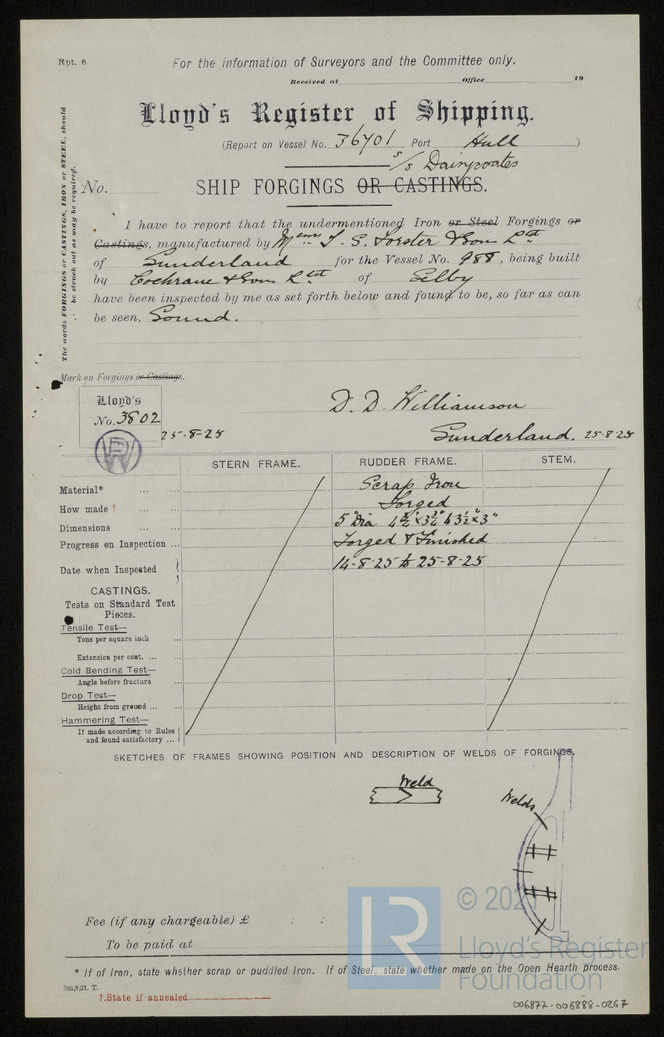 Rpt. 6.
For the information of Surveyors and the Committee only.
Received at Office 19
Lloyd's Register of Shipping.
(Report on Vessel No. 36701 Port Hull )
s/s Dairycoates
No.
SHIP FORGINGS OR CASTINGS.
The words FORGINGS or CASTINGS, IRON or STEEL, should
be struck out as may be required.
I have to report that the undermentioned Iron or Steel Forgings or
Castings, manufactured by Messrs T. S. Forster & Sons Ltd
of Sunderland for the Vessel No. 988, being built
by Cochrane & Sons Ltd of Selby
have been inspected by me as set forth below and found to be, so far as can
be seen, Sound.
Mark on Forgings or Castings.
Lloyd's
No. 3802
25-8-25
D. D. Williamson
Sunderland. 25-8-25
STERN FRAME. RUDDER FRAME. STEM.
Material* ... ... Scrap Iron
How made † ... ... Forged
Dimensions ... ... 5" Dia 4¾" x 3¼" & 3½" x 3"
Progress on Inspection ... Forged & Finished
Date when Inspected 14-8-25 to 25-8-25
CASTINGS.
Tests on Standard Test
Pieces.
Tensile Test—
Tons per square inch ...
Extension per cent. ... ...
Cold Bending Test—
Angle before fracture ...
Drop Test—
Height from ground ... ...
Hammering Test—
If made according to Rules
and found satisfactory ...
SKETCHES OF FRAMES SHOWING POSITION AND DESCRIPTION OF WELDS OF FORGINGS.
Weld
Welds
Fee (if any chargeable) £ : :
To be paid at
* If of Iron, state whether scrap or puddled Iron. If of Steel, state whether made on the Open Hearth process.
3m,8,21. T.
†.State if annealed
LR
© 2021
Lloyd's Register
Foundation
006877-006888-0267